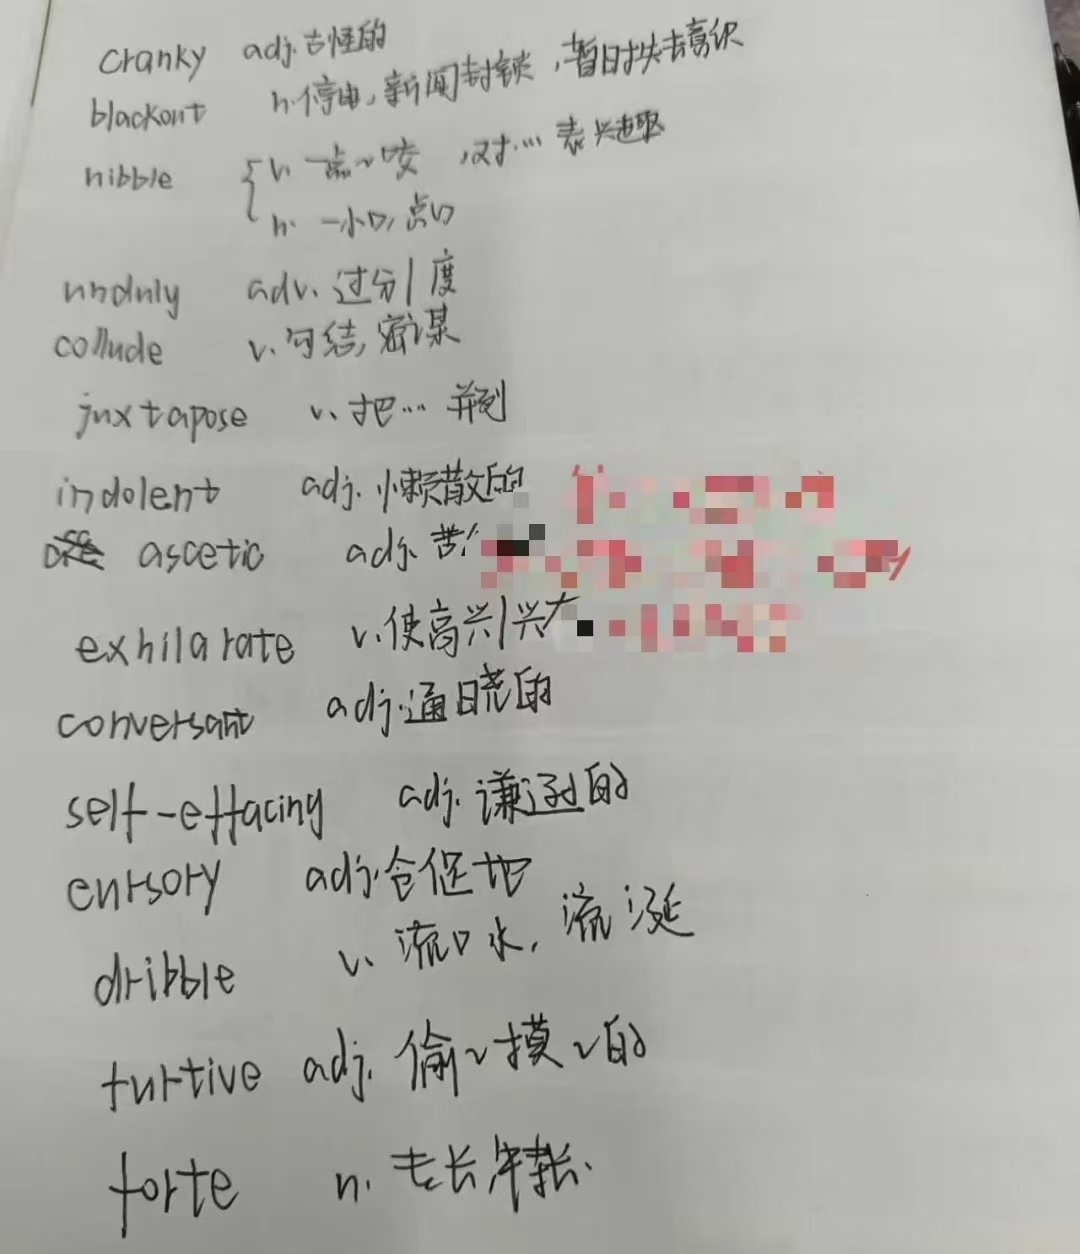 cranky adj.古怪的
blackout n. 停电, 新闻封锁, 暂时失去意识
nibble v. 一点~咬, 对… 表兴趣
n. 一小口, 点心
unduly adv. 过分/度
collude v. 勾结, 密谋
juxtapose v. 把… 并列
indolent adj. 懒散的
ascetic adj. 苦
exhilarate v. 使高兴/兴
conversant adj. 通晓的
self-effacing adj. 谦逊的
cursory adj. 仓促地
dribble v. 流口水, 流涎
furtive adj. 偷~摸~的
forte n. 专长, 特长